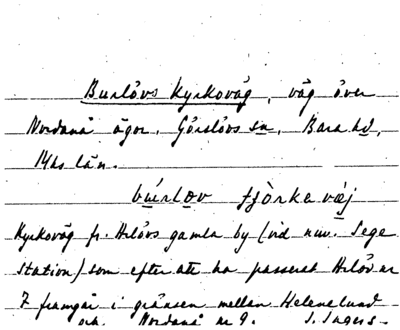 Burlövs Kyrkoväg, väg över
Nordanå ägor, Görslövs sn, Bara hd,
Mhs län.
bu̯rlov tjörkevæj
Kyrkoväg fr. Arlövs gamla by (vid nuv. Sege
station) som efter att ha passerat Arlöv nr
7 framgår i gränsen mellan Helenelund
och Nordanå nr 9. I. Ingers.